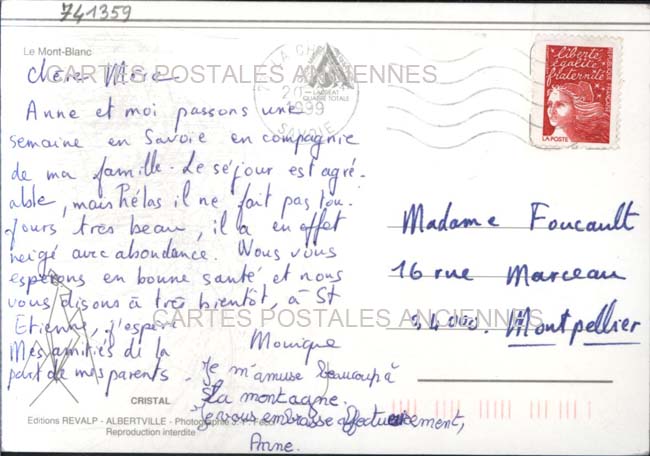 741359
Le Mont-Blanc
Chère Mère
Anne et moi passons une
semaine en Savoie en compagnie
de ma famille. Le séjour est agré-
able, mais hélas il ne fait pas tou-
jours très beau, il a en effet
neigé avec abondance. Nous vous
espérons en bonne santé et nous
vous disons à très bientôt, à St
Etienne, j'espère
Mes amitiés de la
part de mes parents.
Monique
Je m'amuse beaucoup à
la montagne.
Je vous embrasse affectueusement,
Anne.
CRISTAL
Editions REVALP - ALBERTVILLE - Photographie J.-P.
Reproduction interdite
LA
20
1999
SAVOIE
LAUREAT
QUALITE TOTALE
liberté
égalité
fraternité
LA POSTE
Madame Foucault
16 rue Marceau
34000 Montpellier
CARTES POSTALES ANCIENNES
CARTES POSTALES ANCIENNES